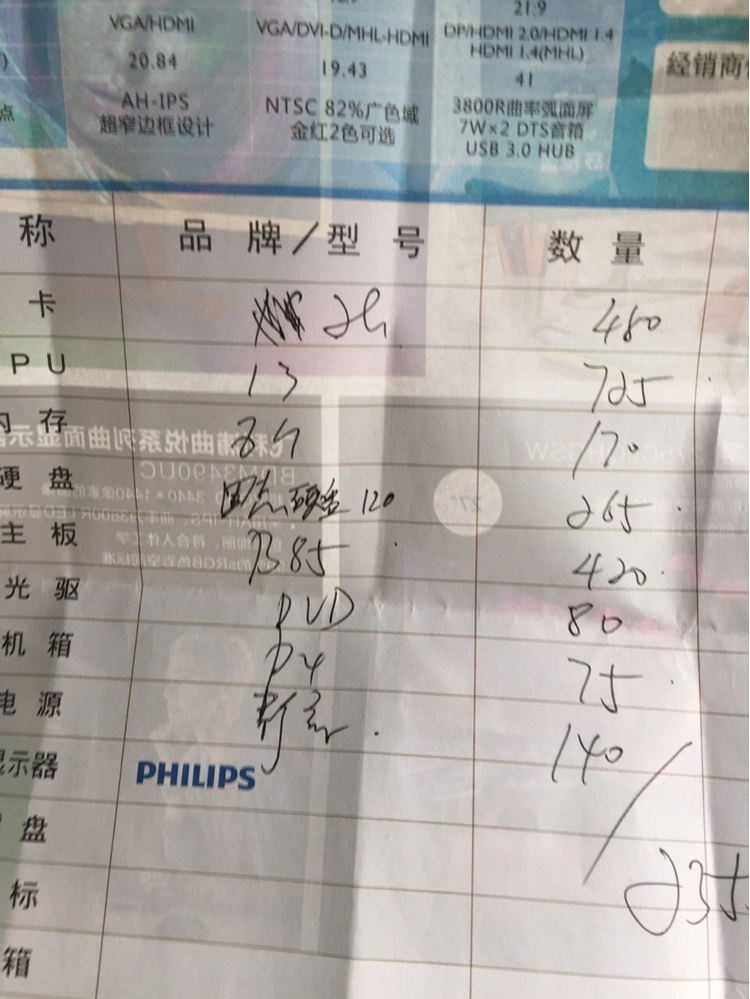 21.9
VGA/HDMI VGA/DVI-D/MHL-HDMI DP/HDMI 2.0/HDMI 1.4
HDMI 1.4(MHL)
20.84 19.43 41
AH-IPS NTSC 82%广色域 3800R曲率弧面屏
超窄边框设计 金红2色可选 7W×2 DTS音箱
USB 3.0 HUB
经销商
点
称 品牌/型号 数量
卡 2G 480
PU I3 725
内存 8G 170
硬盘 固态硬盘 120 265
主板 B85 420
光驱 DVD 80
机箱 P4 75
电源 140
显示器 PHILIPS
盘 235
标
箱